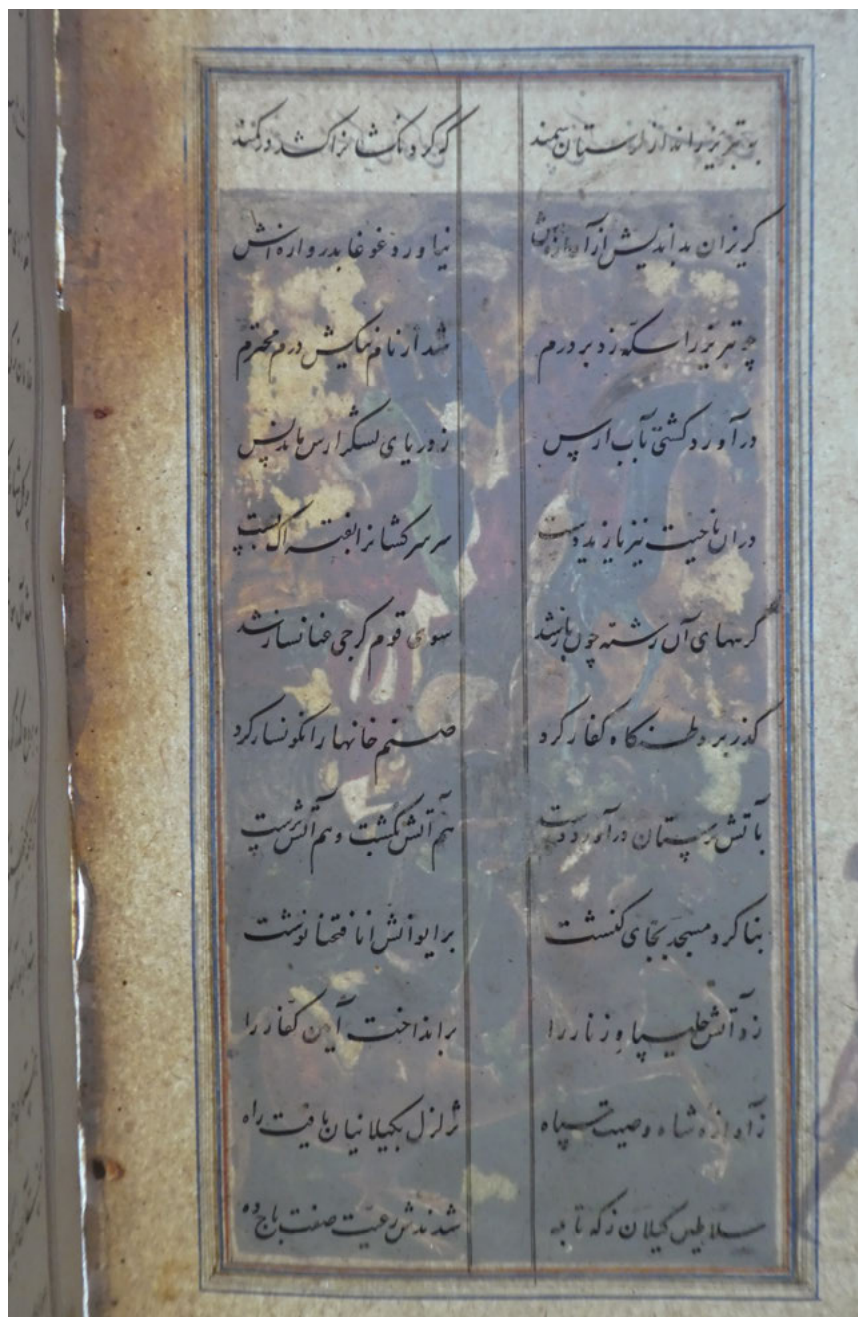 به تبریز راند از لرستان سمند که گردنکشانرا کشد در کمند
گریزان بداندیش از آوازه اش نیاورد غوغا بدروازه اش
چو تبریز را سکه زد بر درم شد از نام نیکیش درم محترم
درآورد کشتی بآب ارس ز دریای لشگر ارس ماند پس
دران ناحیت نیز یازید دست سر سرکشانرا بفتراک بست
گرههای آن رشته چون باز شد سوی قوم کرجی عنانساز شد
گذر بر وطنگاه کفار کرد صنم خانها را نگونسار کرد
بآتش پرستان درآورد دست هم آتش بکشت و هم آتش پرست
بنا کرد مسجد بجای کنشت بر ایوانش انا فتحنا نوشت
زد آتش چلیپا و زنار را برانداخت آیین کفار را
ز آوازه شاه وصیت سپاه تزلزل بگیلانیان یافت راه
سلاطین گیلان ز که تا به شدندش رعیت صفت باج ده